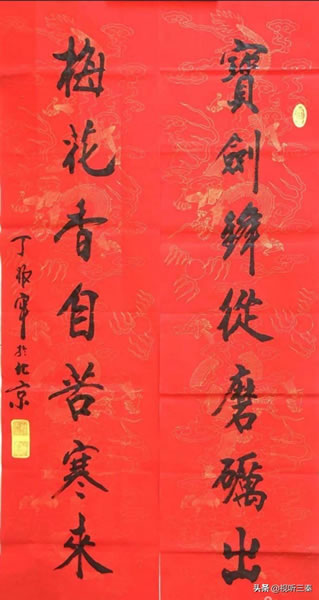 寶劍鋒從磨礪出
梅花香自苦寒來
丁 於北京
头条 @视听三秦